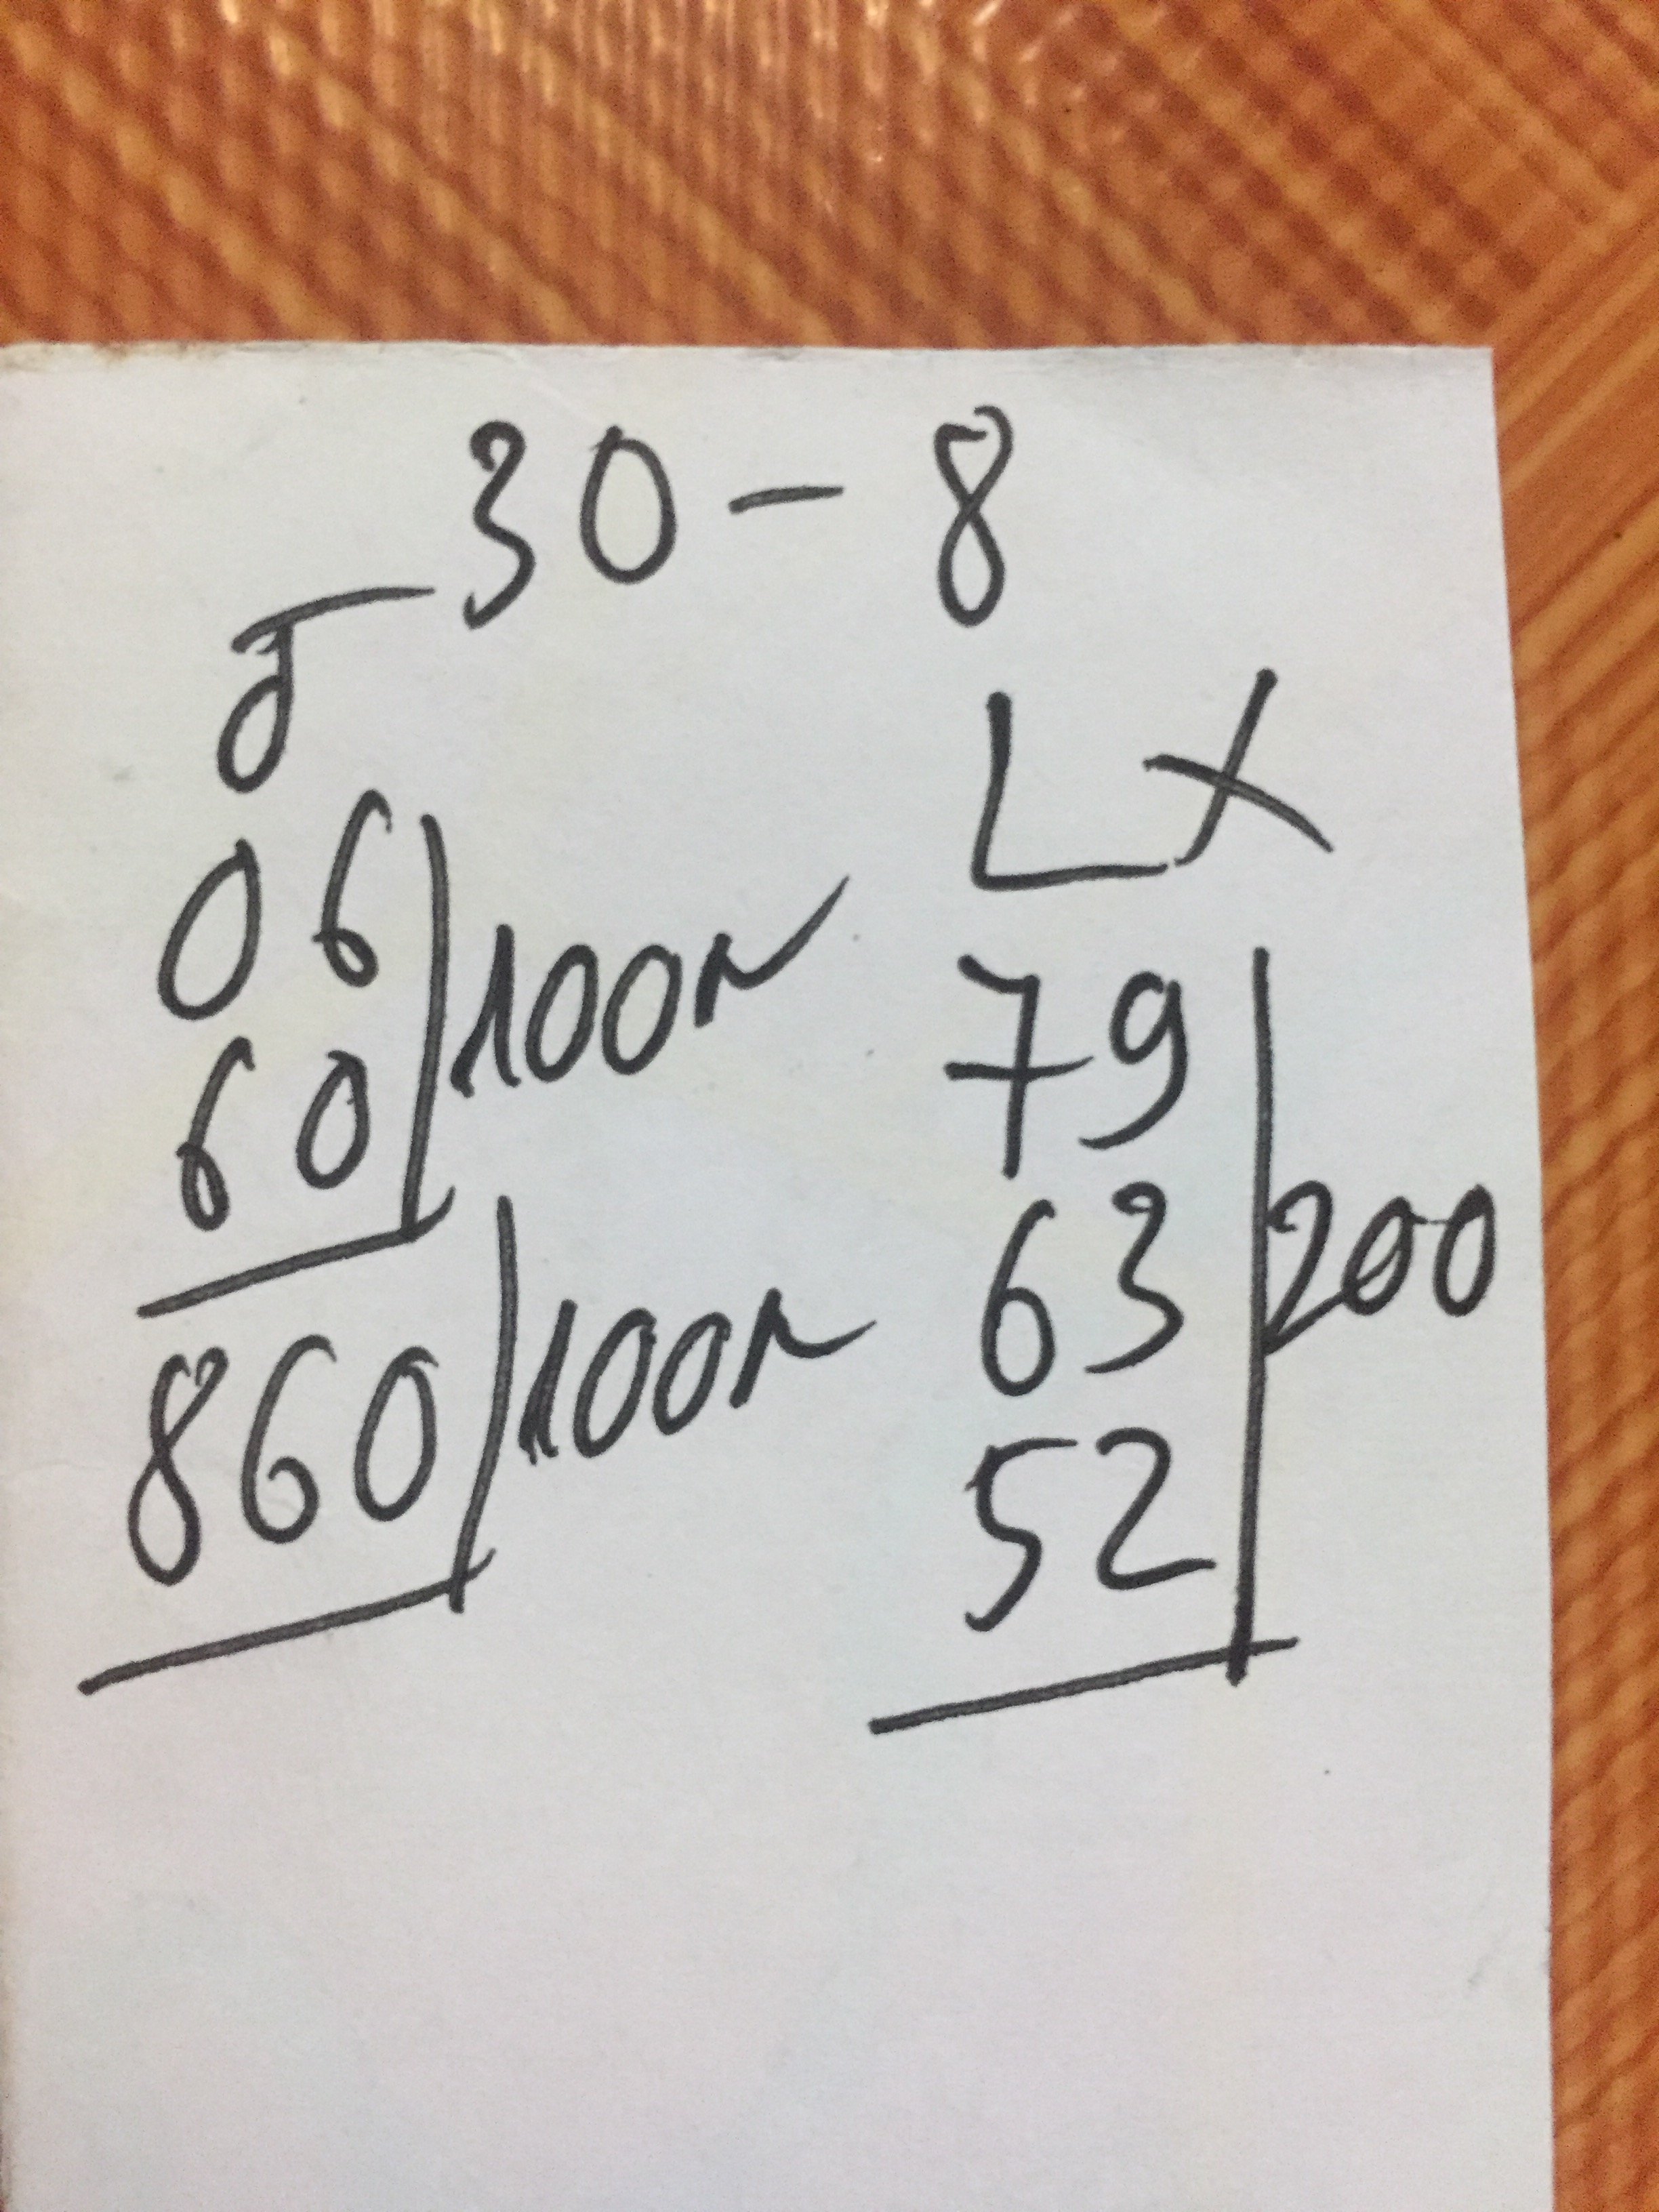 30 - 8
06
60
100n
860
100n
LX
79
63
52
200